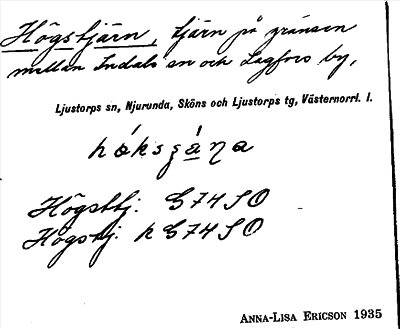 Högstjärn, tjärn på gränsen
mellan Indals sn och Lagfors by,
Ljustorps sn, Njurunda, Sköns och Ljustorps tg, Västernorrl. l.
Högsttj. G74SO
Högstj. k G74SO
ANNA-LISA ERICSON 1935